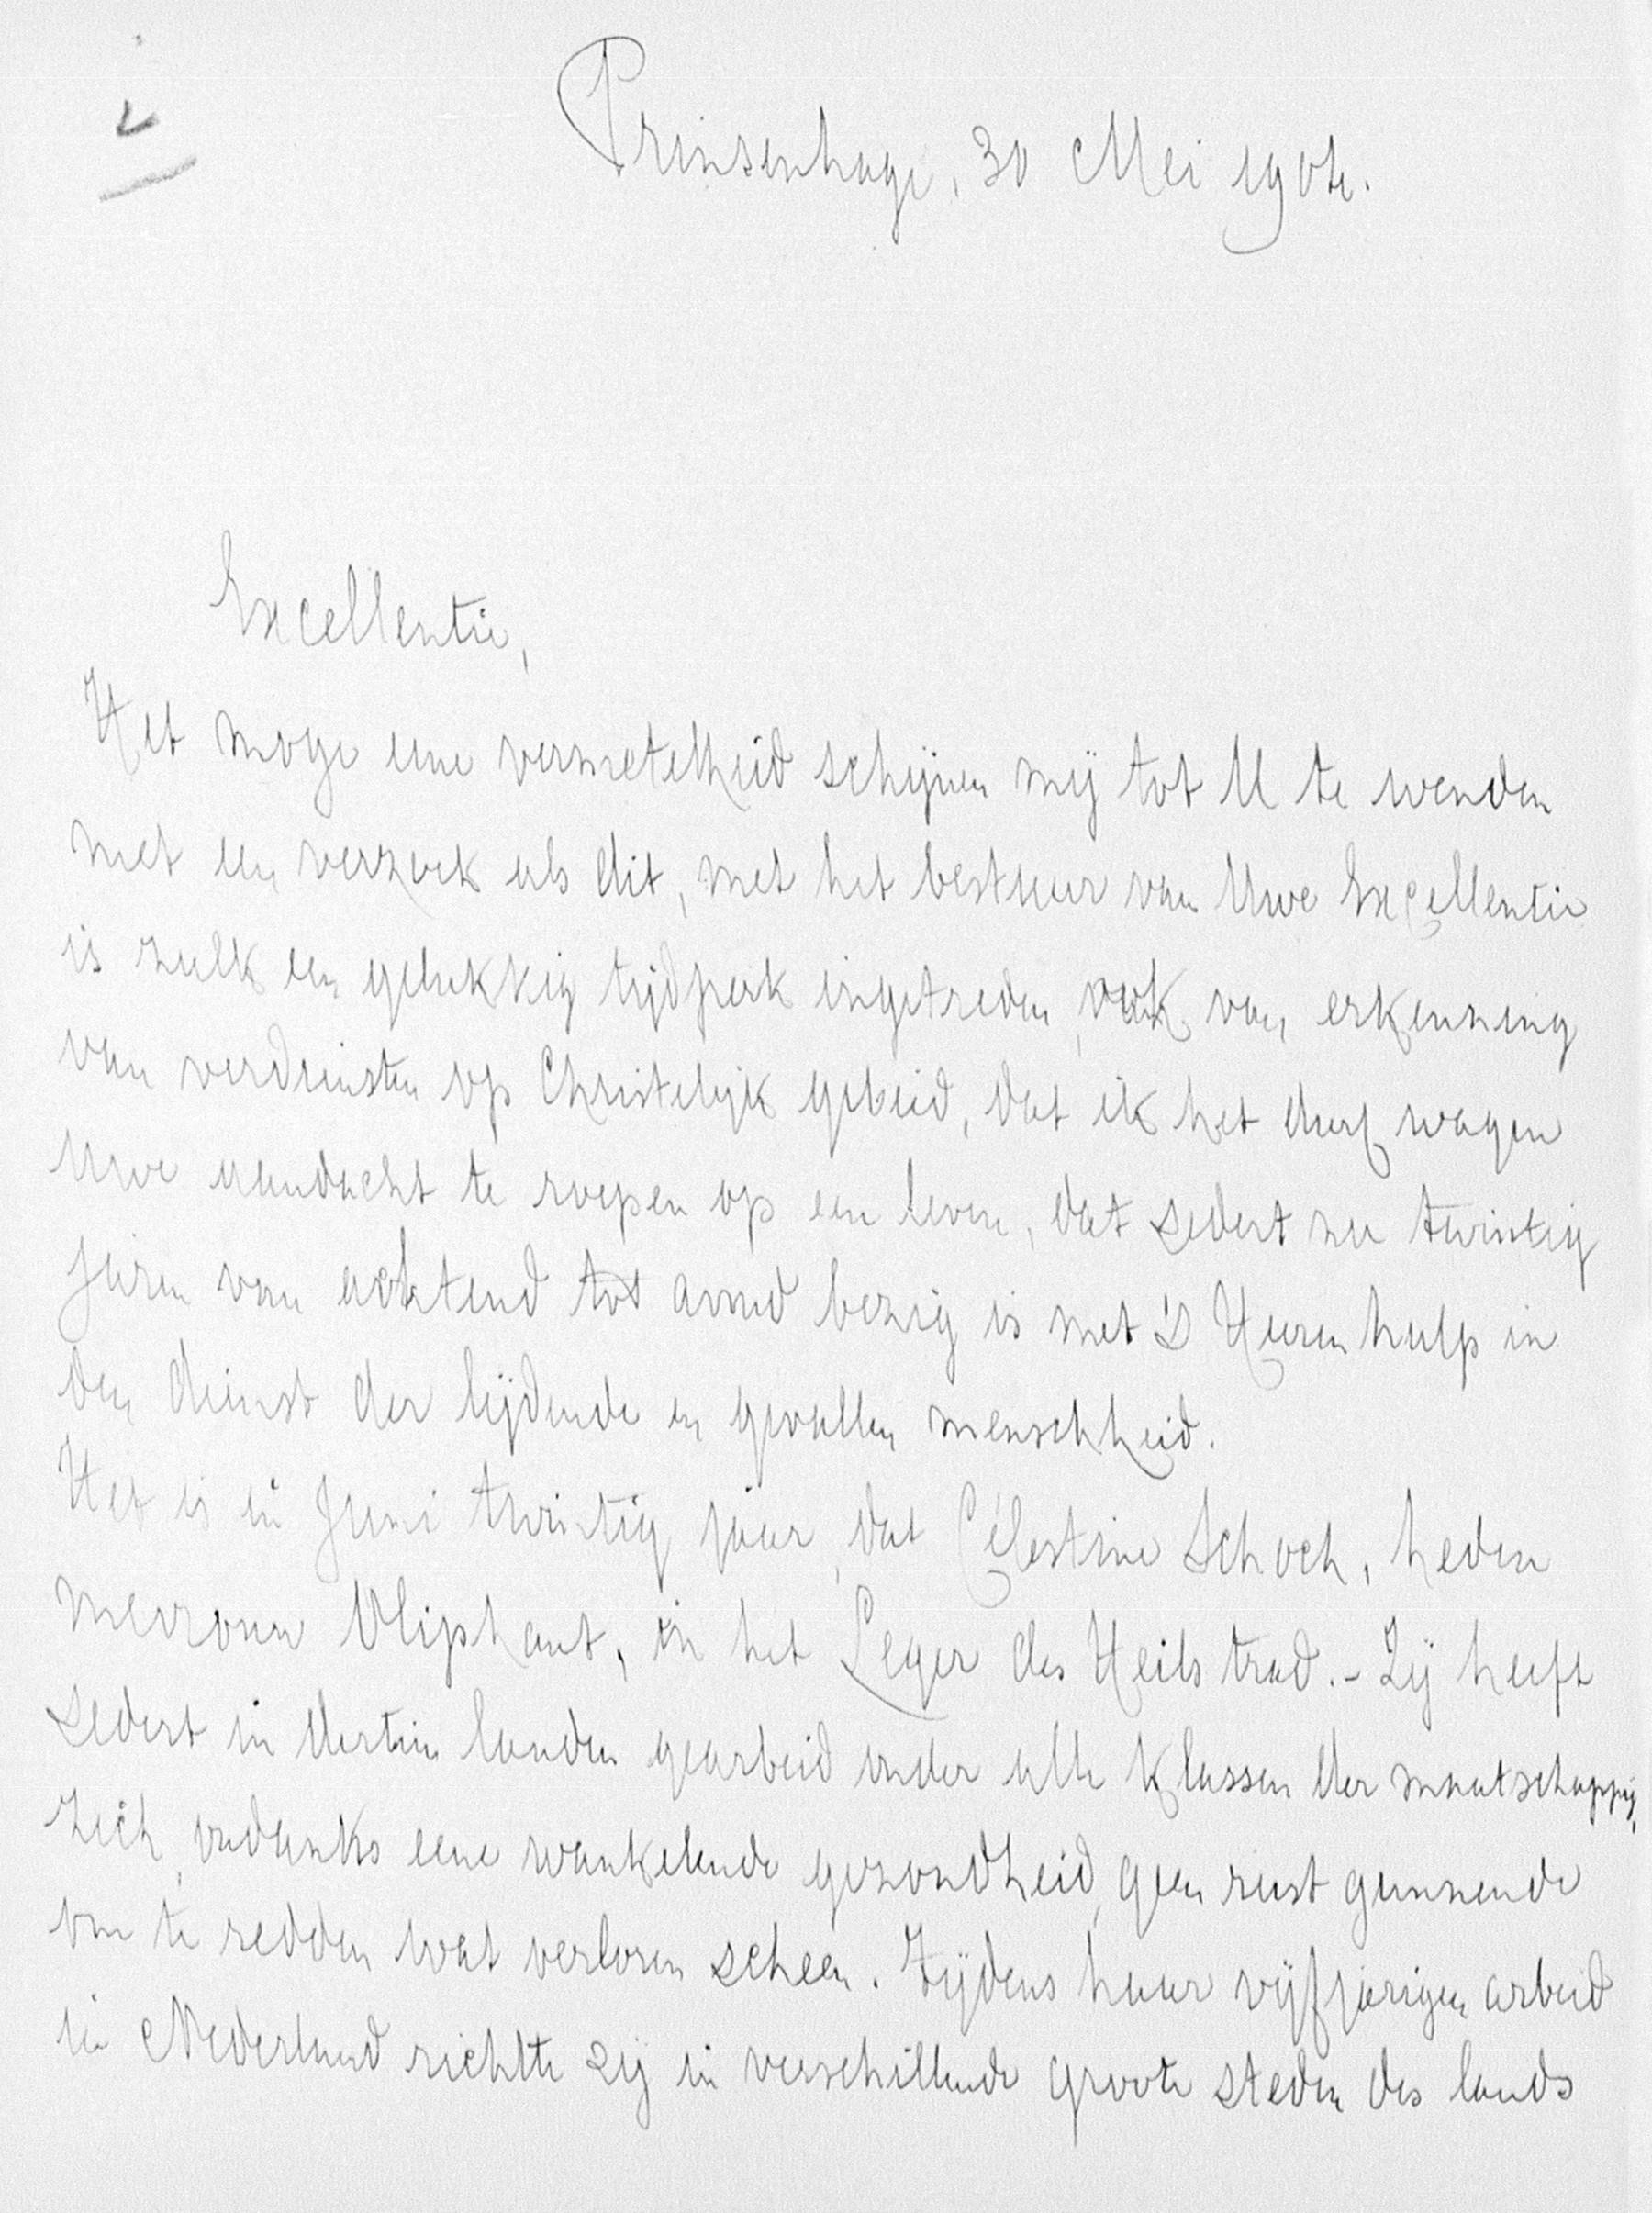 Prinsenhage, 30 Mei 1904.
Excellentie,
Het moge eene vermetelheid schijnen mij tot U te wenden
met een verzoek als dit, met het bestuur van Uwe Excellentie
is zulk een gelukkig tijdperk ingetreden, ook van erkenning
van verdiensten op Christelijk gebied, dat ik het durf wagen
Uwe aandacht te roepen op een leven, dat sedert nu twintig
jaren van ochtend tot avond bezig is met 's Heeren hulp in
den dienst der lijdende en gevallen menschheid.
Het is in Juni twintig jaar, dat Célestine Schoch, heden
mevrouw Oliphant, in het Leger des Heils trad. - Zij heeft
sedert in dertien landen gearbeid onder alle klassen der maatschappij,
zich, ondanks eene wankelende gezondheid, geen rust gunnende
om te redden wat verloren scheen. Tijdens haar vijfjarigen arbeid
in Nederland richtte zij in verschillende groote steden des lands